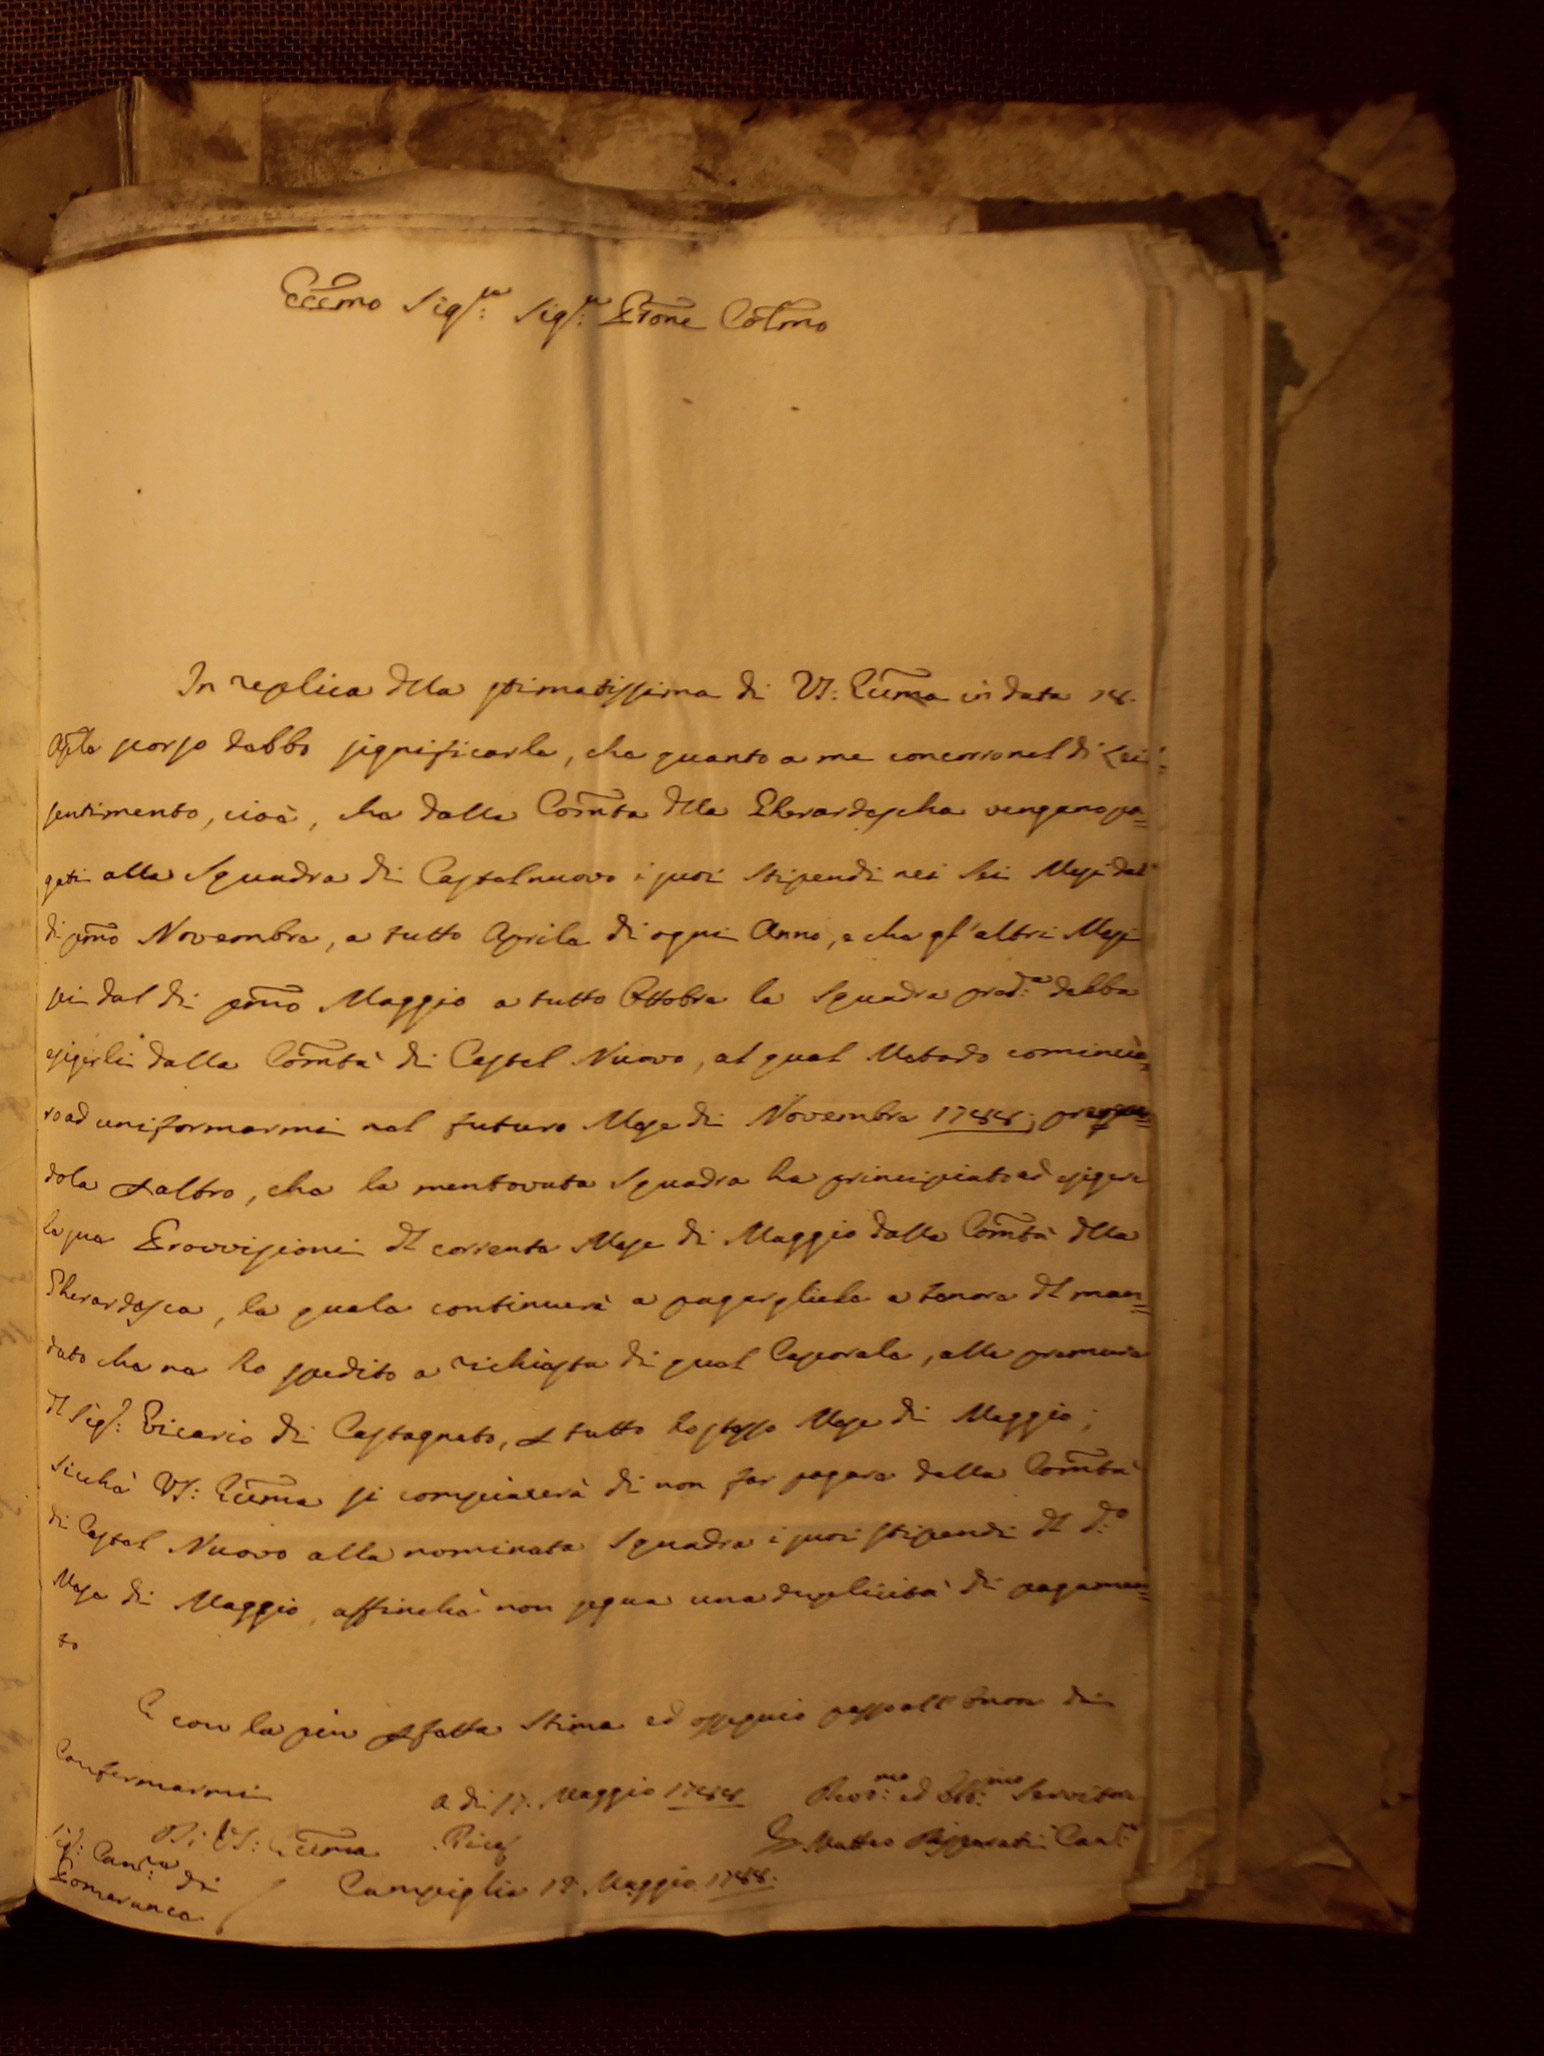 Eccmo Sig.re Sig.re Prone Colmo
In replica dlla stimatissima di VS: Eccma in data 18.
Aple scorso debbo significarle, che quanto a me concorro nel di Lei
sentimento, cioè, che dalla Comta dlla Gherardescha vengano pa=
gati alla Squadra di Castelnuovo i suoi stipendi nei Sei Mesi dal
di pmo Novembre, a tutto Aprile di ogni Anno, e che gl'altri Mesi
sei dal di pmo Maggio a tutto Ottobre la Squadra pred.a debba
esigerli dalla Comtà di Castel Nuovo, al qual Metodo comincie=
rò ad uniformarmi nel futuro Mese di Novembre 1788; preven=
dola p altro, che la mentovata Squadra ha principiato ad esigere
le sue Provvisioni dl corrente Mese di Maggio dalla Comtà dlla
Gherardesca, la quale continuerà a pagargliele a tenore dl man=
dato che ne ho spedito a richiesta di quel Caporale, alle premure
dl Sig.r Vicario di Castagneto, p tutto lo stesso Mese di Maggio;
Sicchè VS: Eccma si compiacerà di non far pagare dalla Comtà
di Castel Nuovo alla nominata Squadra i suoi stipendi dl d.o
Mese di Maggio, affinchè non segua una duplicità di pagamen=
to
E con la più pfetta stima ed ossequio passo all'onore di
Confermarmi
a di 17. Maggio 1788 Dev.mo ed Obb.mo Servitore
Di VS: Eccma Ricev
Matteo Can.re
Sig.r Canc.re di
Pomarance
Campiglia 12 Maggio 1788.